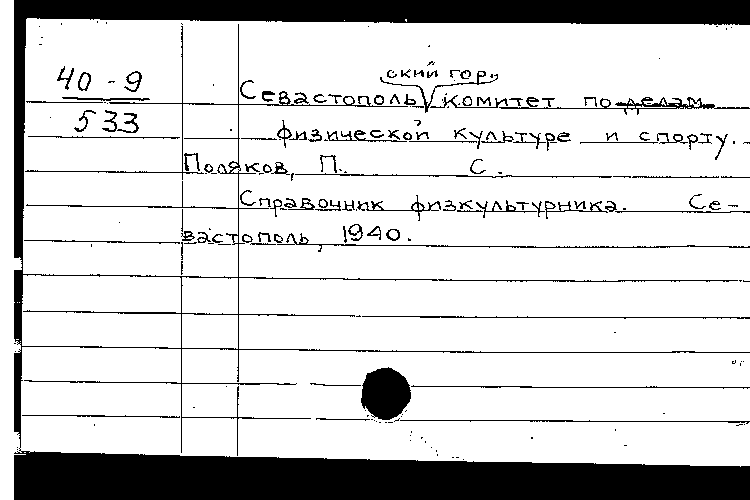 40-9
533
ский гор.
Севастополь комитет по делам
физической культуре и спорту.
Поляков, П. С.
Справочник физкультурника. Се-
вастополь, 1940.